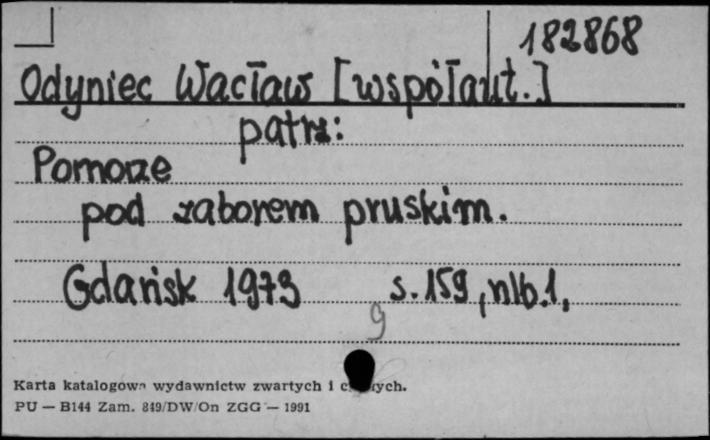 182868
Odyniec Wacław [współaut.]
patrz:
Pomorze
pod zaborem pruskim.
Gdańsk 1973 s. 159, nlb. 1,
9
Karta katalogowa wydawnictw zwartych i
PU — B144 Zam. 849/DW/On ZGG — 1991